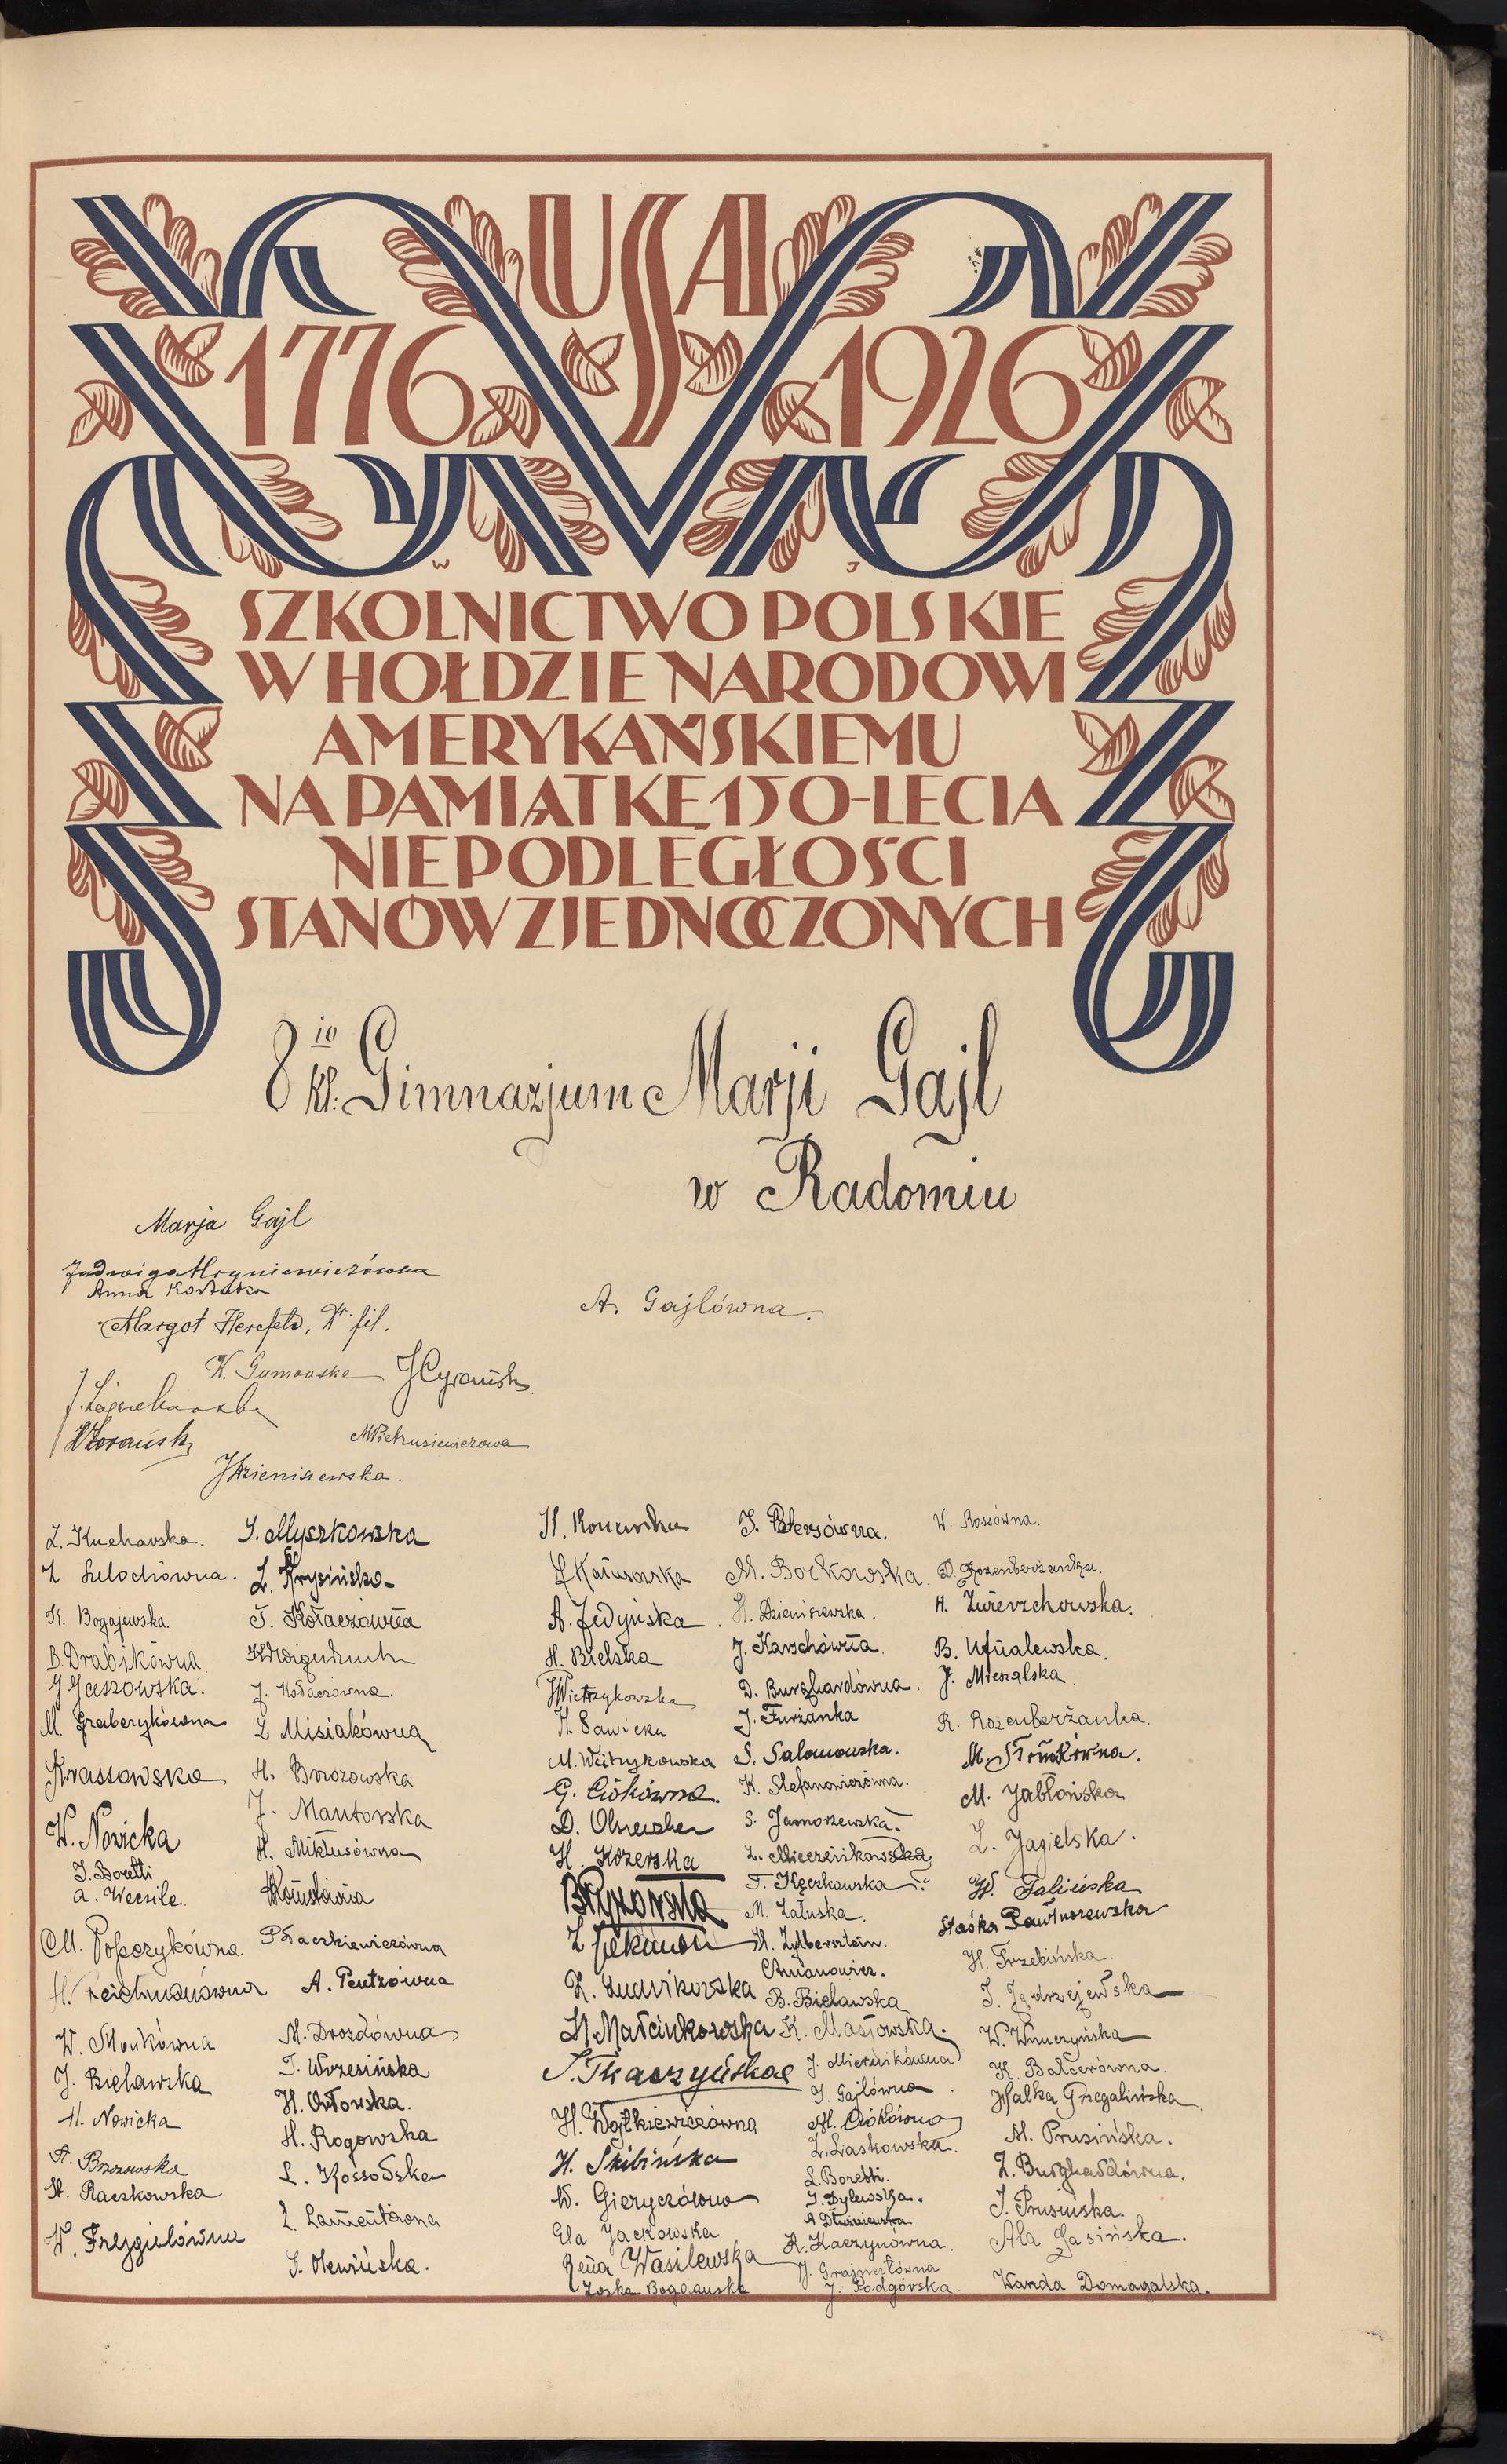 USA
1776 1926
W J
SZKOLNICTWO POLSKIE
W HOŁDZIE NARODOWI
AMERYKAŃSKIEMU
NA PAMIĄTKĘ 150-LECIA
NIEPODLEGŁOŚCI
STANÓW ZJEDNOCZONYCH
8io kl: Gimnazjum Marji Gajl
w Radomiu
Marja Gajl
Jadwiga Hryniewiczówna
Anna
A. Gajlówna.
Margot Herefeld, Dr. fil.
K. Gumowska
MPietrusiewiczowa
JDzieniszewska.
Z. Kucharska.
Z
K. Bogajewska.
B. Drabikówna
J Gaszowska.
M. Graberykówna
Krassowska
W. Nowicka
J. Boretti
M. Popczykówna.
H. Zeichmanówna
W. Monkówna
J. Bielawska
H. Nowicka
A. Brzozowska
St. Raczkowska
W. Frygielówna
J. Myszkowska
Z. Krysińska
T. Kołaczówna
J. Kołaczówna.
Z Misiakówna
H. Brzozowska
J. Mantorska
H. Miklusówna
Płaczkiewiczówna
A. Pentzówna
M. Drozdówna
T. Wrzesińska
H. Orłowska.
H. Rogowska
L. Kossowska
Z. Lamentówna
S. Olewińska.
K.
A. Jedyńska
H. Bielska
JWietrzykowska
H. Sawicka
M. Wietrzykowska
G. Ciókówna.
D.
H. Kozerska
BRyżowska
Z
Z. Ludwikowska
H Marcinkowska
S. Tkaczyńska
H. Wojtkiewiczówna
H. Skibińska
W. Gieryczówna
Ela Jackowska
Rena Wasilewska
Zoska Bogdańska
J. Petersówna.
M. Borkowska.
H. Dzieniszewska.
J. Karschówna.
D. Burghardówna.
J. Furżanka
S. Salomońska.
K. Stefanowiczówna.
S. Jaworzewska.
Z. Mieczeńkowska
T. Kęczkowska
M. Załuska.
H. Zylbersztein.
Chmanowicz.
B. Bielawska
K. Masłowska.
J. Miernikówna
J. Gajlówna.
M. Ciókówna
Z. Laskowska.
L. Boretti.
J. Dylewska.
A Dłużniewska
K. Kaczynówna.
J. Grajnertówna
J. Podgórska.
W. Rossówna.
D. Rozenberżanka.
H. Zwierzchowska.
B. Ufnalewska.
J. Mierzalska.
R. Rozenberżanka.
M. Słomkówna.
M. Jabłońska
Z. Jagielska.
W. Falińska
Staśka Pawłuszewska
H. Trzebińska.
J. Jędrzejewska
W. Wnuczyńska
K. Balcerówna.
Halka Grzegalińska.
M. Prusińska.
Z. Burghardówna.
J. Prusińska.
Ala Jasińska.
Wanda Domagalska.